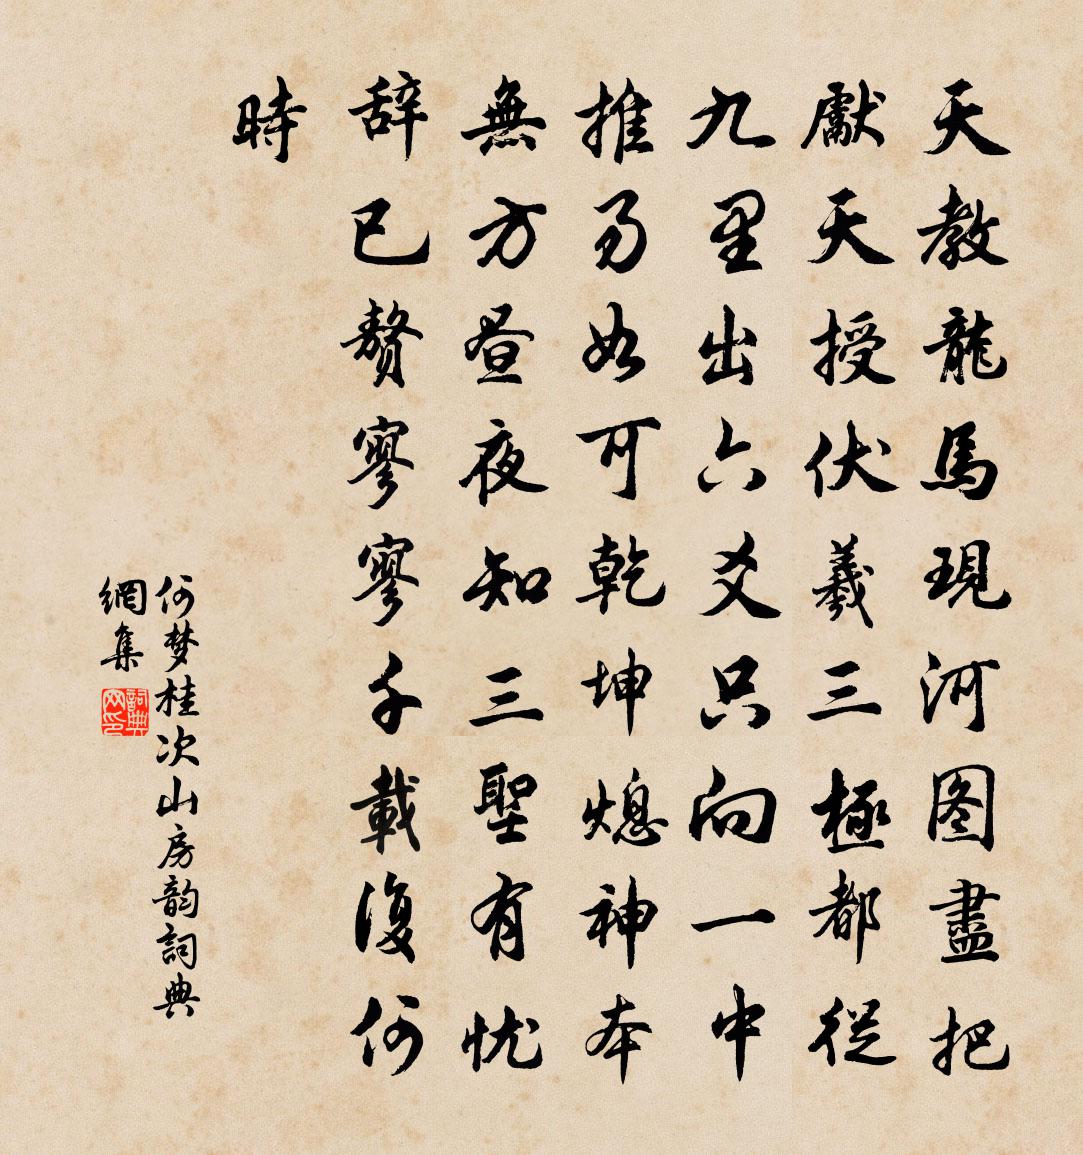 天教龍馬現河图盡把
獻天授伏羲三極都從
九里出六爻只向一中
推易如可乾坤熄神本
無方昼夜知三聖有忧
辞已贅寥寥千載復何
時
何梦桂次山房韵詞典
網集
詞典網印